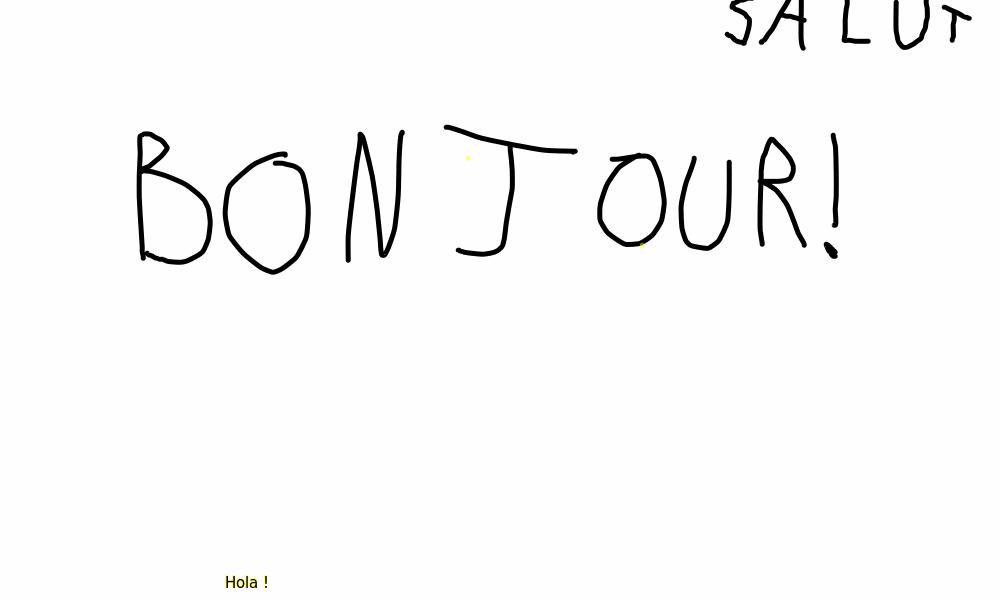 SALUT
BONJOUR!
Hola !